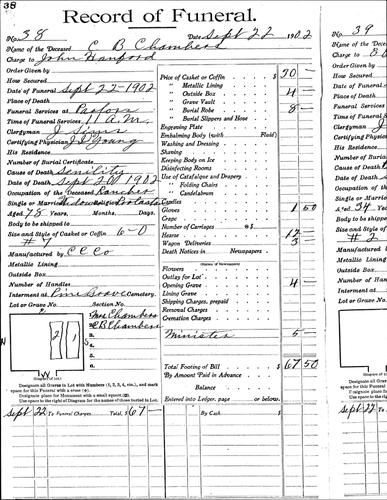 38
Record of Funeral.
No. 38 Date Sept 22 1902
Name of the Deceased C B Chambers
Charge to John Hanford
Order Given by
How Secured
Date of Funeral Sept 22 - 1902
Place of Death
Funeral Services at Pastors
Time of Funeral Services 11 A.M.
Clergyman J
Certifying Physician Young
His Residence
Number of Burial Certificate
Cause of Death Senility
Date of Death Sept 20 1902
Occupation of the Deceased Rancher
Single or Married Widow Religion
Aged 78 Years. Months. Days.
Body to be shipped to
Size and Style of Casket or Coffin 6-0
#7
Manufactured by C C Co
Metallic Lining
Outside Box
Number of Handles
Interment at Pine Grove Cemetery.
Lot or Grave No. Section No.
Mrs Chambers
C B Chambers
2 1
N
W
(Diagram of Lot.)
Designate all Graves in Lot with Numbers (1, 2, 3, 4, etc.), and mark
space for this Funeral with a cross (+).
Designate place for Monument with a small square (□).
Use space to the right of Diagram for the names of those buried in Lot.
Price of Casket or Coffin $ 30 -
" Metallic Lining
" Outside Box 4 -
" Grave Vault
" Burial Robe 8 -
" Burial Slippers and Hose
Engraving Plate
Embalming Body (with Fluid)
Washing and Dressing
Shaving
Keeping Body on Ice
Disinfecting Rooms
Use of Catafalque and Drapery
" Folding Chairs
" Candelabrum
Candles
Gloves 1 50
Crape
Number of Carriages @ $
Hearse 12 -
Wagon Deliveries 3 -
Death Notices in Newspapers
(Names of Newspapers)
Flowers
Outlay for Lot
Opening Grave 4 -
Lining Grave
Shipping Charges, prepaid
Removal Charges
Cremation Charges
Minister 5 -
Total Footing of Bill $ 67 50
By Amount Paid in Advance
Balance
Entered into Ledger, page or below.
Sept 22 To Funeral Charges Total, $ 67 - By Cash $
No. 39
Name of the Deceased
Charge to
Order Given by
How Secured
Date of Funeral
Place of Death
Funeral Services
Time of Funeral
Clergyman
Certifying Physician
His Residence
Number of Burial
Cause of Death
Date of Death
Occupation of the
Single or Married
Aged 34 Years
Body to be shipped
Size and Style of
#2
Manufactured by
Metallic Lining
Outside Box
Number of Handles
Interment at
Lot or Grave No.
(Diagram of Lot.)
Designate all
space for this
Designate place
Use space to the
Sept 22